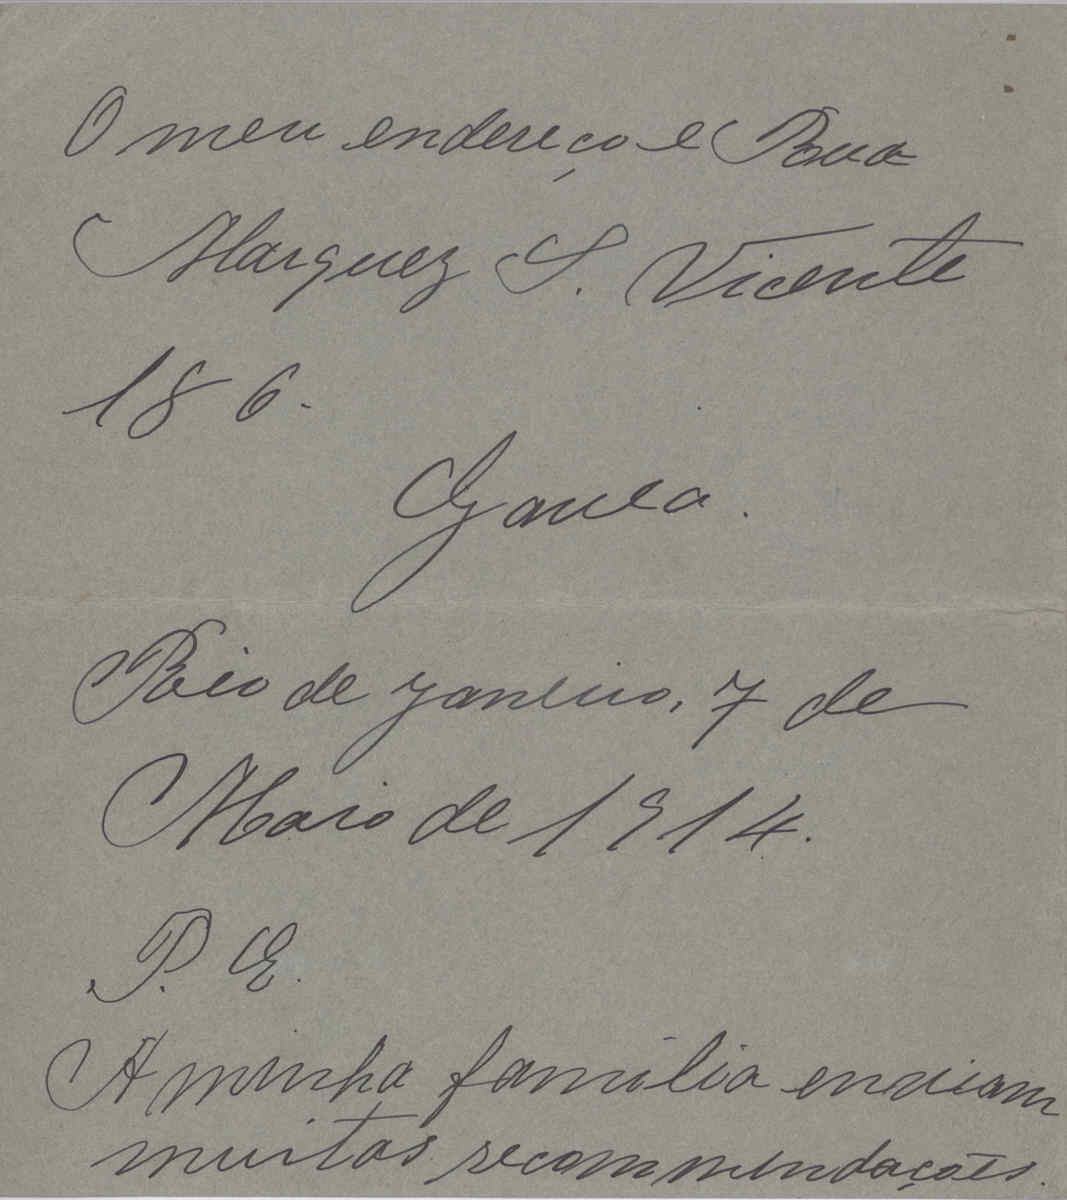 O meu endereço e Rua
Marquez S. Vicente
186.
Gavea.
Rio de Janeiro, 7 de
Maio de 1914.
P. E.
A minha familia enviam
muitas recommendações.